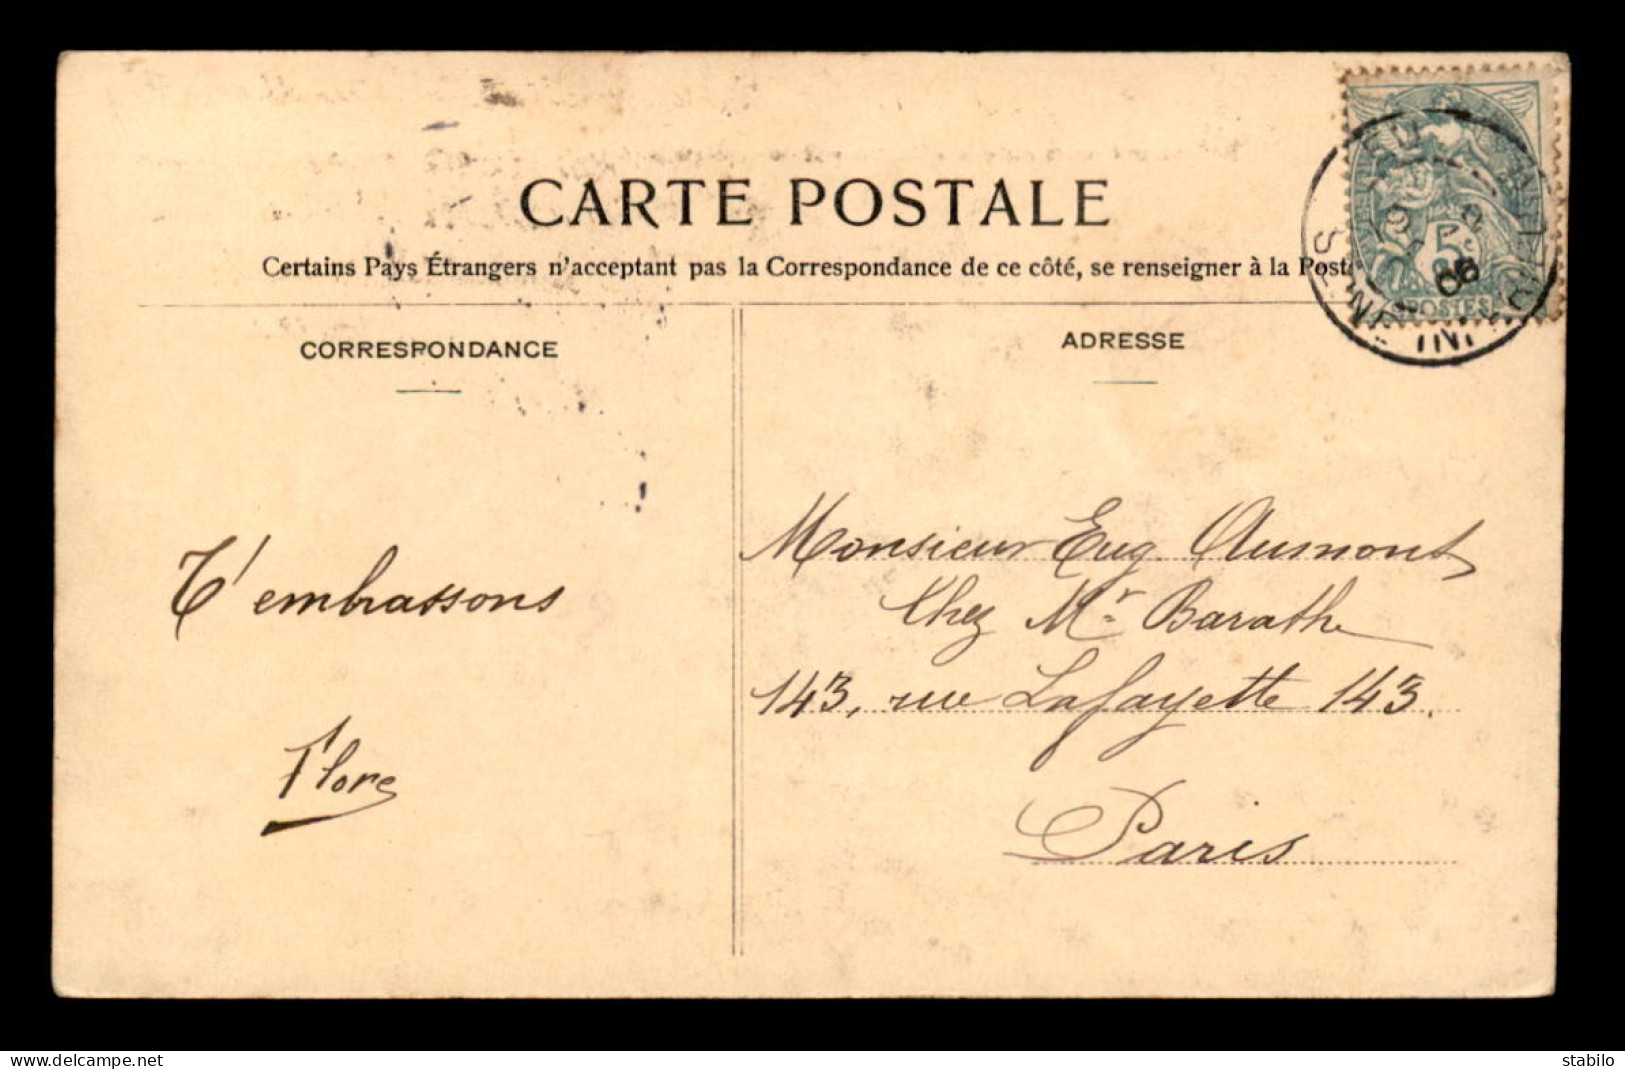 CARTE POSTALE
Certains Pays Étrangers n'acceptant pas la Correspondance de ce côté, se renseigner à la Post
CORRESPONDANCE
ADRESSE
5c
POSTES
06
T'embrassons
Flore
Monsieur Eug. Aumont
Chez Mr Barathe
143, rue Lafayette 143.
Paris
www.delcampe.net
stabilo